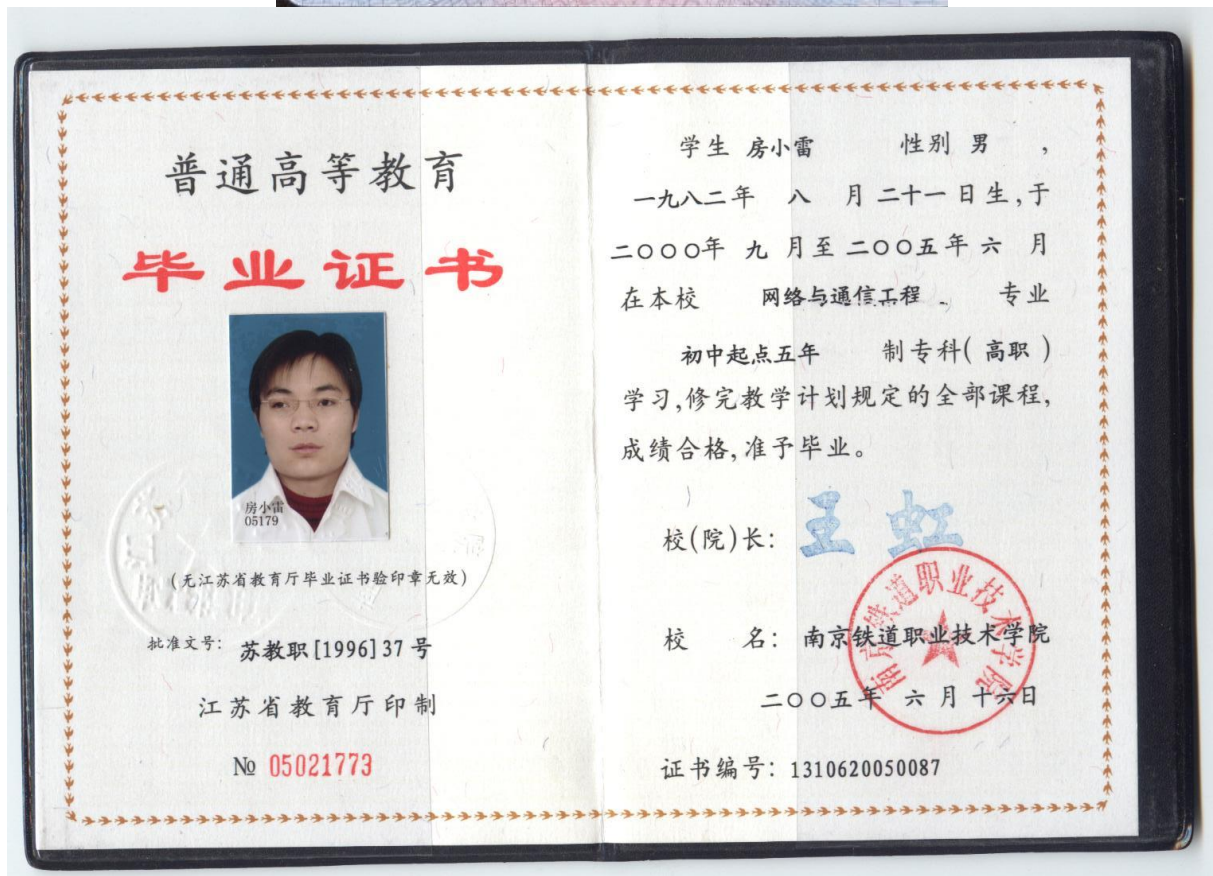 普通高等教育
毕业证书
房小雷
05179
(无江苏省教育厅毕业证书验印章无效)
批准文号: 苏教职[1996]37号
江苏省教育厅印制
№ 05021773
学生 房小雷 性别 男 ,
一九八二年 八 月 二十一 日生,于
二〇〇〇年 九 月至 二〇〇五年 六 月
在本校 网络与通信工程 专业
初中起点五年 制专科( 高职 )
学习,修完教学计划规定的全部课程,
成绩合格,准予毕业。
校(院)长: 王虹
南京铁道职业技术学院
校 名: 南京铁道职业技术学院
二〇〇五年 六 月 十六日
证书编号: 1310620050087